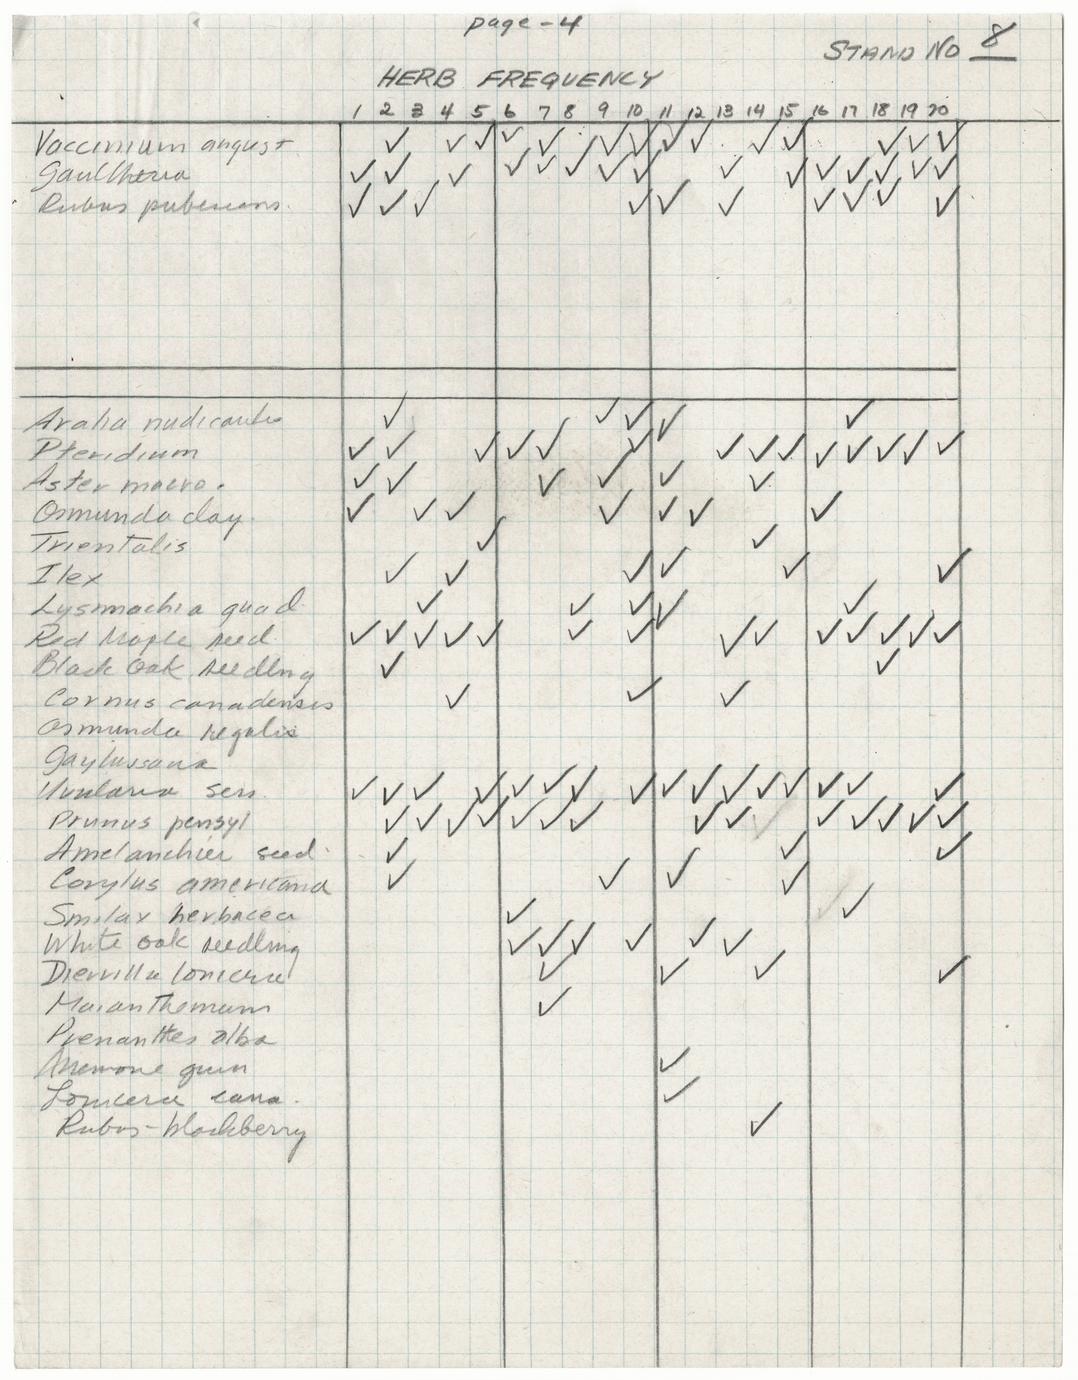 page - 4
STAND NO 8
HERB FREQUENCY
1 2 3 4 5 6 7 8 9 10 11 12 13 14 15 16 17 18 19 20
Vaccinium angust ✓ ✓ ✓ ✓ ✓ ✓ ✓ ✓ ✓ ✓ ✓ ✓ ✓ ✓
Gaultheria ✓ ✓ ✓ ✓ ✓ ✓ ✓ ✓ ✓ ✓ ✓ ✓ ✓ ✓ ✓
Rubus pubescens. ✓ ✓ ✓ ✓ ✓ ✓ ✓ ✓ ✓ ✓
Aralia nudicaulis ✓ ✓ ✓ ✓ ✓
Pteridium ✓ ✓ ✓ ✓ ✓ ✓ ✓ ✓ ✓ ✓ ✓ ✓ ✓ ✓
Aster macro. ✓ ✓ ✓ ✓ ✓ ✓
Osmunda clay. ✓ ✓ ✓ ✓ ✓ ✓ ✓
Trientalis ✓ ✓
Ilex ✓ ✓ ✓ ✓ ✓ ✓
Lysmachia quad ✓ ✓ ✓ ✓ ✓
Red Maple seed ✓ ✓ ✓ ✓ ✓ ✓ ✓ ✓ ✓ ✓ ✓ ✓ ✓ ✓
Black Oak seedling ✓ ✓
Cornus canadensis ✓ ✓ ✓
Osmunda regalis
Gaylussacia
Uvularia sess. ✓ ✓ ✓ ✓ ✓ ✓ ✓ ✓ ✓ ✓ ✓ ✓ ✓ ✓ ✓ ✓
Prunus pensyl ✓ ✓ ✓ ✓ ✓ ✓ ✓ ✓ ✓ ✓ ✓ ✓ ✓ ✓ ✓
Amelanchier seed. ✓ ✓ ✓
Corylus americana ✓ ✓ ✓ ✓
Smilax herbacea ✓ ✓
White oak seedling ✓ ✓ ✓ ✓ ✓ ✓
Diervilla lonicera ✓ ✓ ✓ ✓
Maianthemum ✓
Prenanthes alba
Anemone quin ✓
Lonicera cana. ✓
Rubus - blackberry ✓